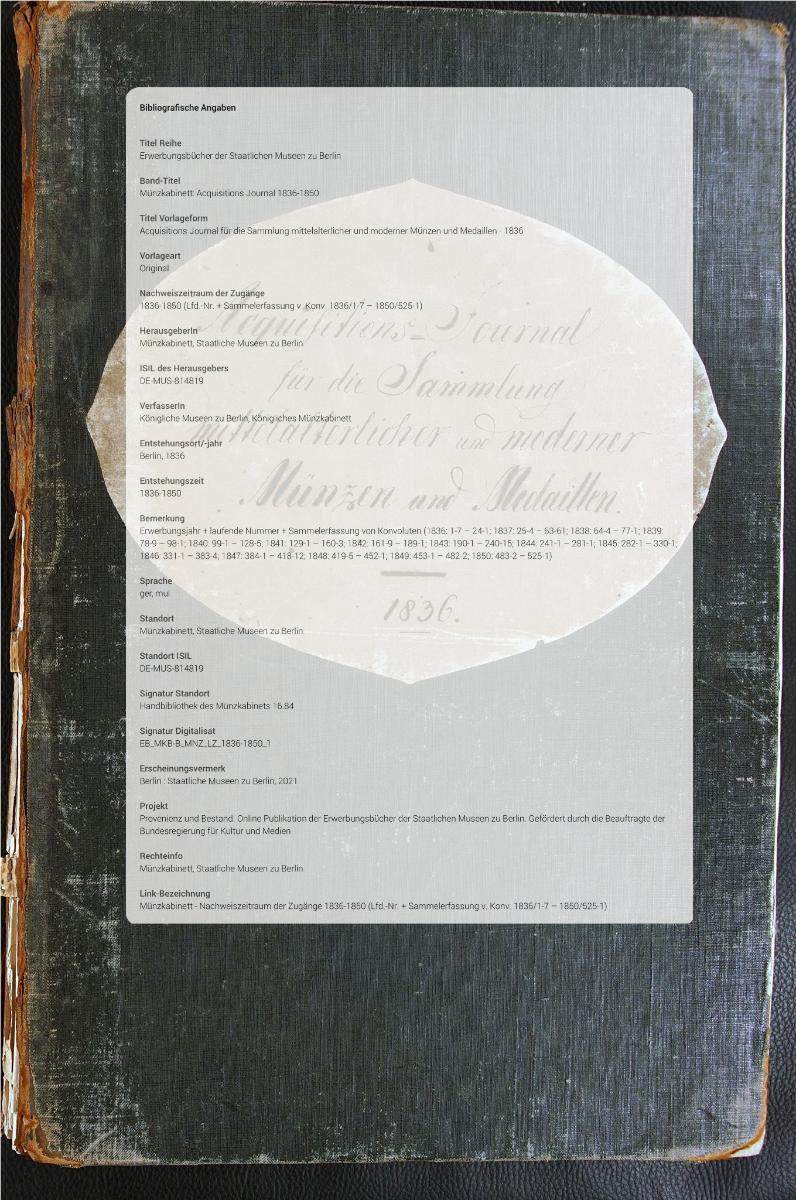 Bibliografische Angaben
Titel Reihe
Erwerbungsbücher der Staatlichen Museen zu Berlin
Band-Titel
Münzkabinett: Acquisitions Journal 1836-1850
Titel Vorlageform
Acquisitions Journal für die Sammlung mittelalterlicher und moderner Münzen und Medaillen - 1836
Vorlageart
Original
Nachweiszeitraum der Zugänge
1836-1850 (Lfd.-Nr. + Sammelerfassung v. Konv. 1836/1-7 – 1850/525-1)
HerausgeberIn
Münzkabinett, Staatliche Museen zu Berlin
ISIL des Herausgebers
DE-MUS-814819
VerfasserIn
Königliche Museen zu Berlin, Königliches Münzkabinett
Entstehungsort/-jahr
Berlin, 1836
Entstehungszeit
1836-1850
Bemerkung
Erwerbungsjahr + laufende Nummer + Sammelerfassung von Konvoluten (1836: 1-7 – 24-1; 1837: 25-4 – 63-61; 1838: 64-4 – 77-1; 1839:
78-9 – 98-1; 1840: 99-1 – 128-5; 1841: 129-1 – 160-3; 1842: 161-9 – 189-1; 1843: 190-1 – 240-15; 1844: 241-1 – 281-1; 1845: 282-1 – 330-1;
1846: 331-1 – 383-4; 1847: 384-1 – 418-12; 1848: 419-5 – 452-1; 1849: 453-1 – 482-2; 1850: 483-2 – 525-1)
Sprache
ger, mul
Standort
Münzkabinett, Staatliche Museen zu Berlin
Standort ISIL
DE-MUS-814819
Signatur Standort
Handbibliothek des Münzkabinets 16.84
Signatur Digitalisat
EB_MKB-B_MNZ_LZ_1836-1850_1
Erscheinungsvermerk
Berlin : Staatliche Museen zu Berlin, 2021
Projekt
Provenienz und Bestand. Online Publikation der Erwerbungsbücher der Staatlichen Museen zu Berlin. Gefördert durch die Beauftragte der
Bundesregierung für Kultur und Medien
Rechteinfo
Münzkabinett, Staatliche Museen zu Berlin
Link-Bezeichnung
Münzkabinett - Nachweiszeitraum der Zugänge 1836-1850 (Lfd.-Nr. + Sammelerfassung v. Konv. 1836/1-7 – 1850/525-1)
Acquisitions-Journal
für die Sammlung
mittelalterlicher und moderner
Münzen und Medaillen.
1836.